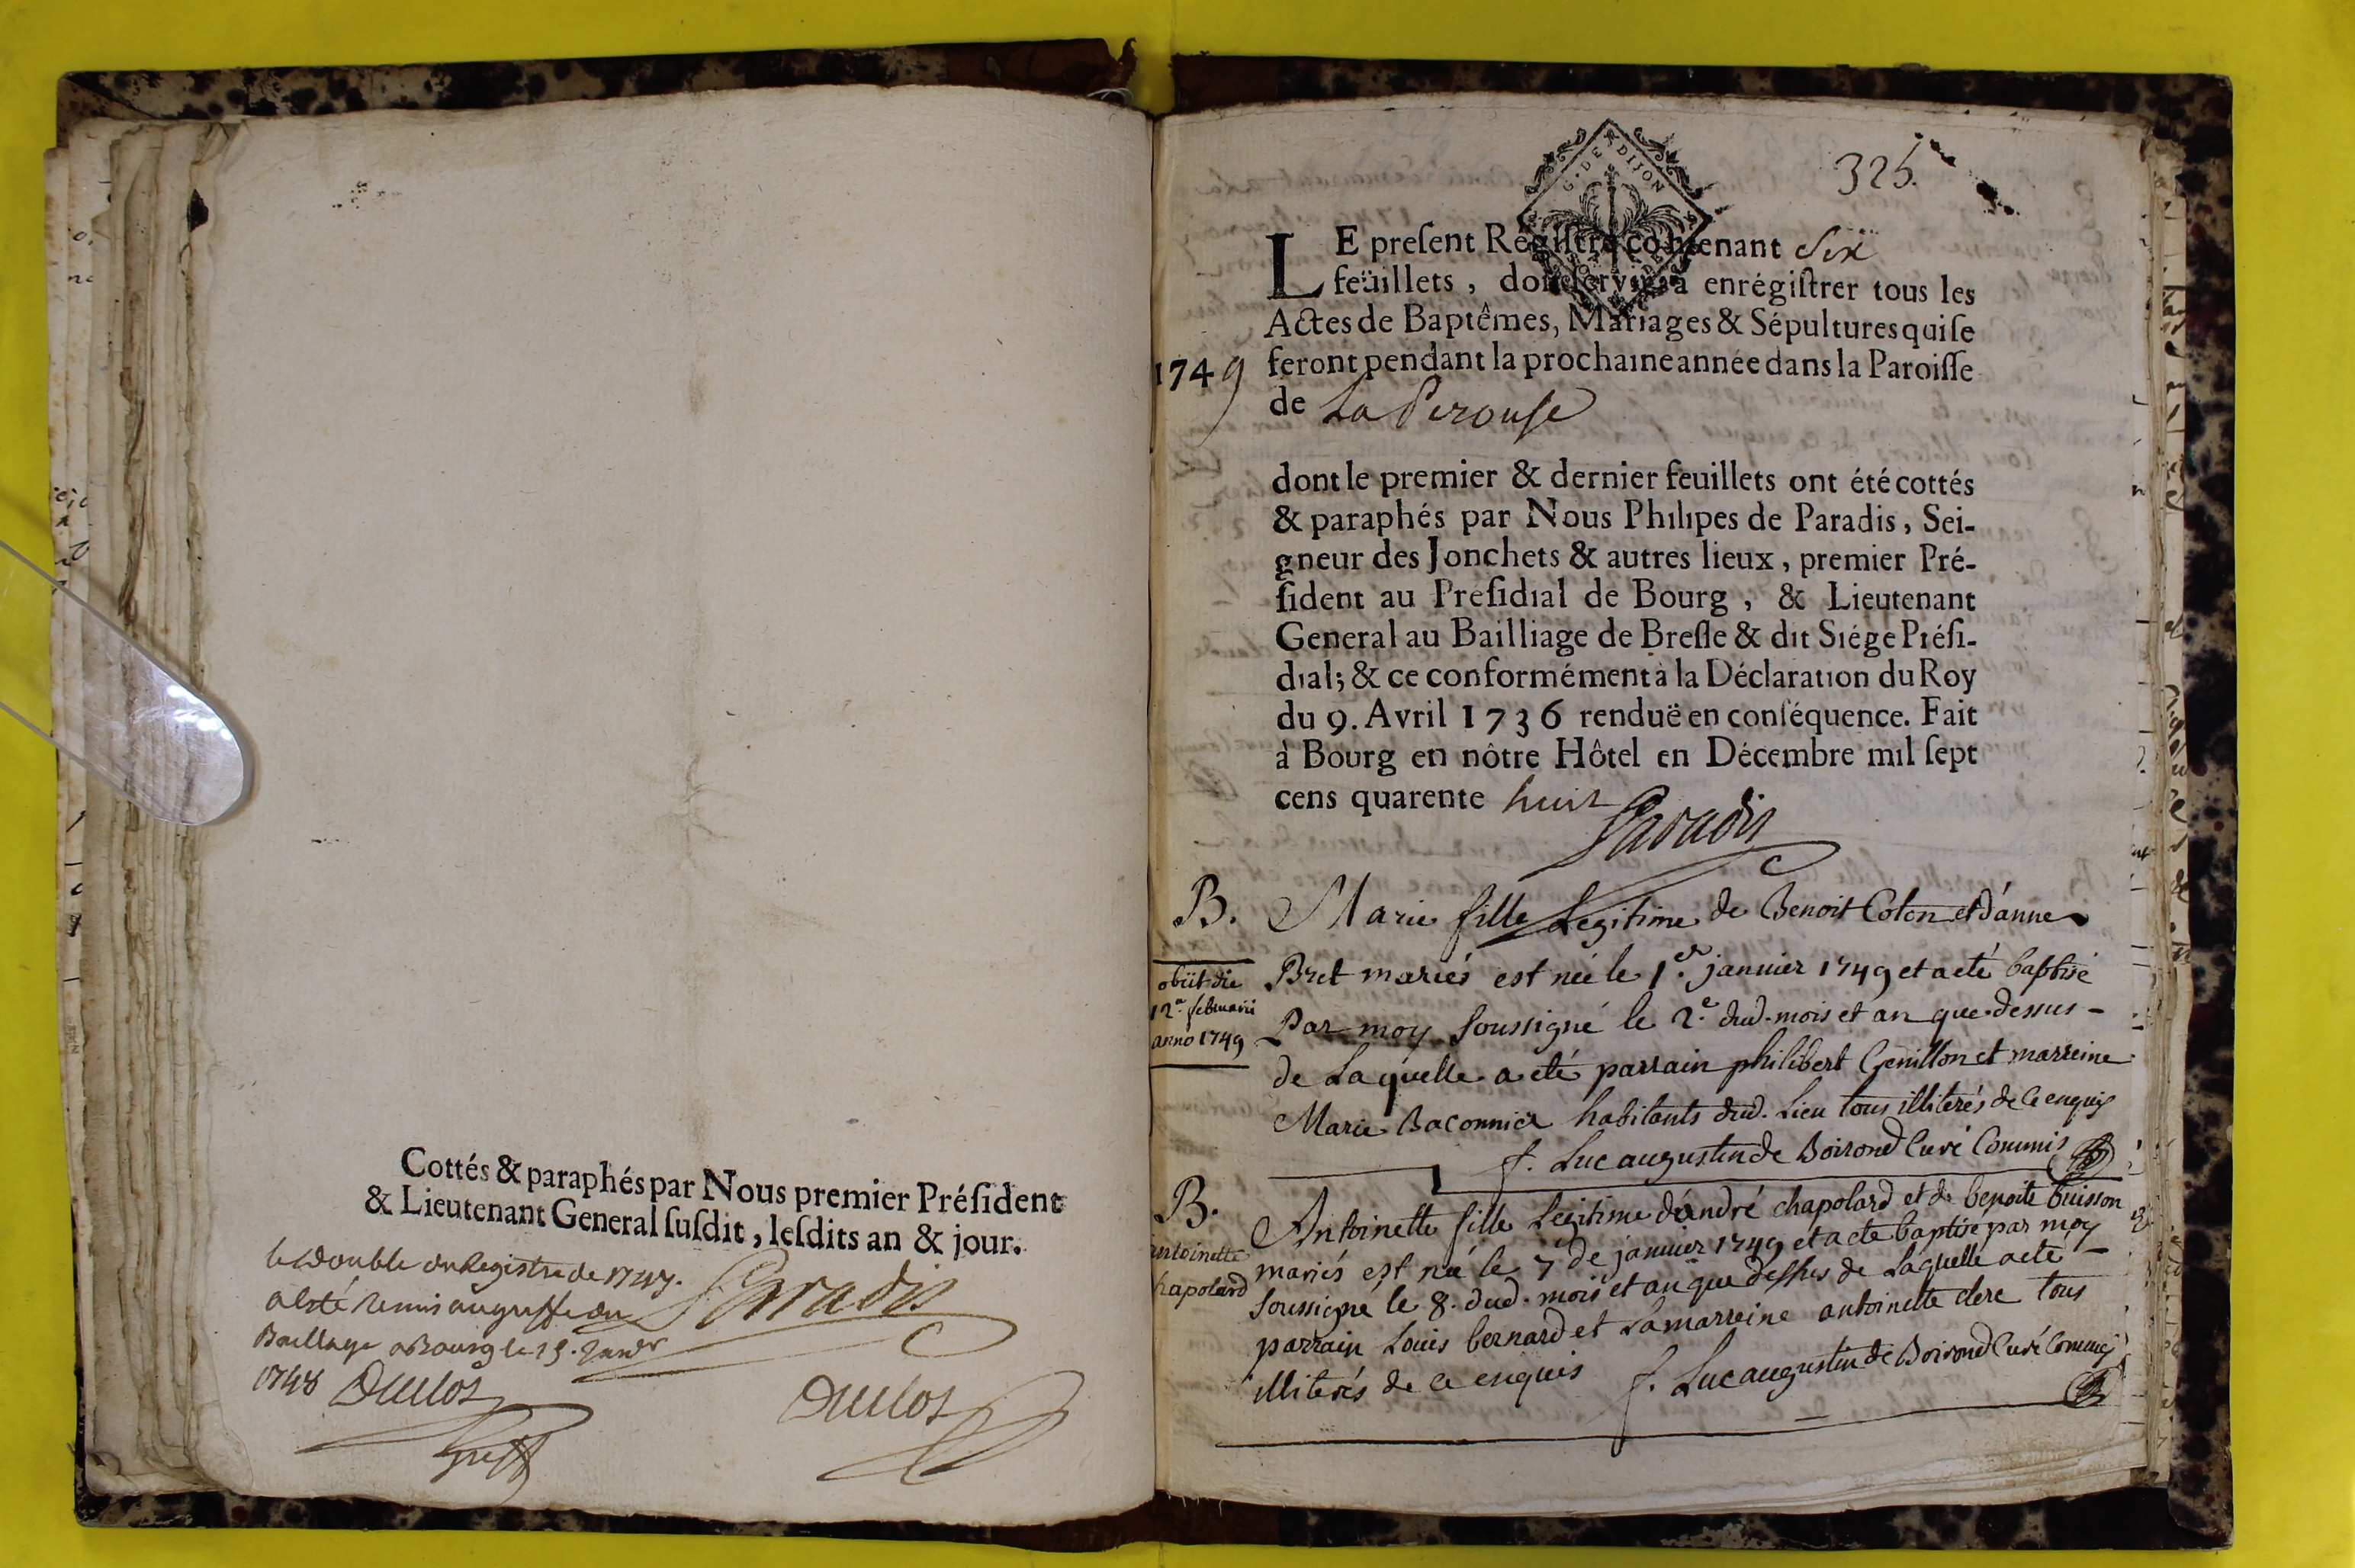 Cottés & paraphés par Nous premier Préſident
& Lieutenant General ſuſdit, leſdits an & jour.
le double du Registre de 1747.
a esté remis au greffe du
Baillage a Bourg le 15. Janvr
1748 Duclos
Greff
Paradis
Duclos
G. DE DIJON
325.
LE preſent Régiſtre contenant Six
feüillets, doit ſervir à enrégiſtrer tous les
Actes de Baptêmes, Mariages & Sépultures qui ſe
1749 feront pendant la prochaine année dans la Paroiſſe
de La Perouse
dont le premier & dernier feuillets ont été cottés
& paraphés par Nous Philipes de Paradis, Sei-
gneur des Jonchets & autres lieux, premier Pré-
ſident au Preſidial de Bourg, & Lieutenant
General au Bailliage de Breſſe & dit Siége Préſi-
dial; & ce conformément à la Déclaration du Roy
du 9. Avril 1736 renduë en conſéquence. Fait
à Bourg en nôtre Hôtel en Décembre mil ſept
cens quarente huit
Paradis
B. Marie fille Legitime de Benoit Colon et d'anne
Bret mariés est née le 1er. janvier 1749 et a eté baptisé
Par moy soussigné le 2.e dud. mois et an que dessus -
de Laquelle a eté parrain philibert Genillon et marreine
Marie Baconnier habitants dud. Lieu tous illiterés de ce enquis
f. Luc augustin de Boirond Curé Commis
obiit die
12.a februarii
anno 1749
B. Antoinette fille Legitime d'andré chapolard et de benoite buisson
mariés est née le 7 de janvier 1749 et a ete baptise par moy
soussigné le 8. dud. mois et an que dessus de Laquelle a eté -
parrain Louis bernard et La marreine antoinette clere tous
illiterés de ce enquis f. Luc augustin de Boirond Curé Commis
antoinette
hapolard